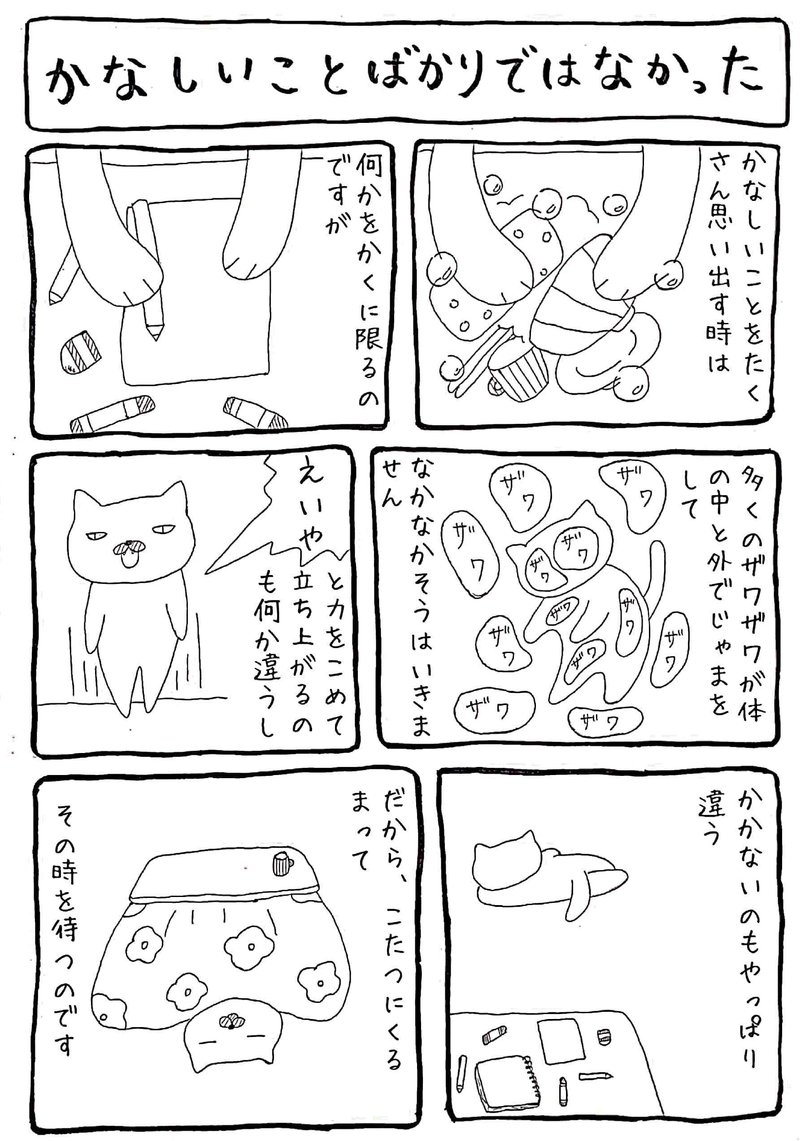 かなしいことばかりではなかった
かなしいことをたく
さん思い出す時は
何かをかくに限るの
ですが
多くのザワザワが体
の中と外でじゃまを
して
ザワ
ザワ
ザワ
ザワ
ザワ
ザワ
ザワ
ザワ
ザワ
ザワ
ザワ
ザワ
なかなかそうはいきま
せん
えいや
と力をこめて
立ち上がるの
も何か違うし
かかないのもやっぱり
違う
だから、こたつにくる
まって
その時を待つのです